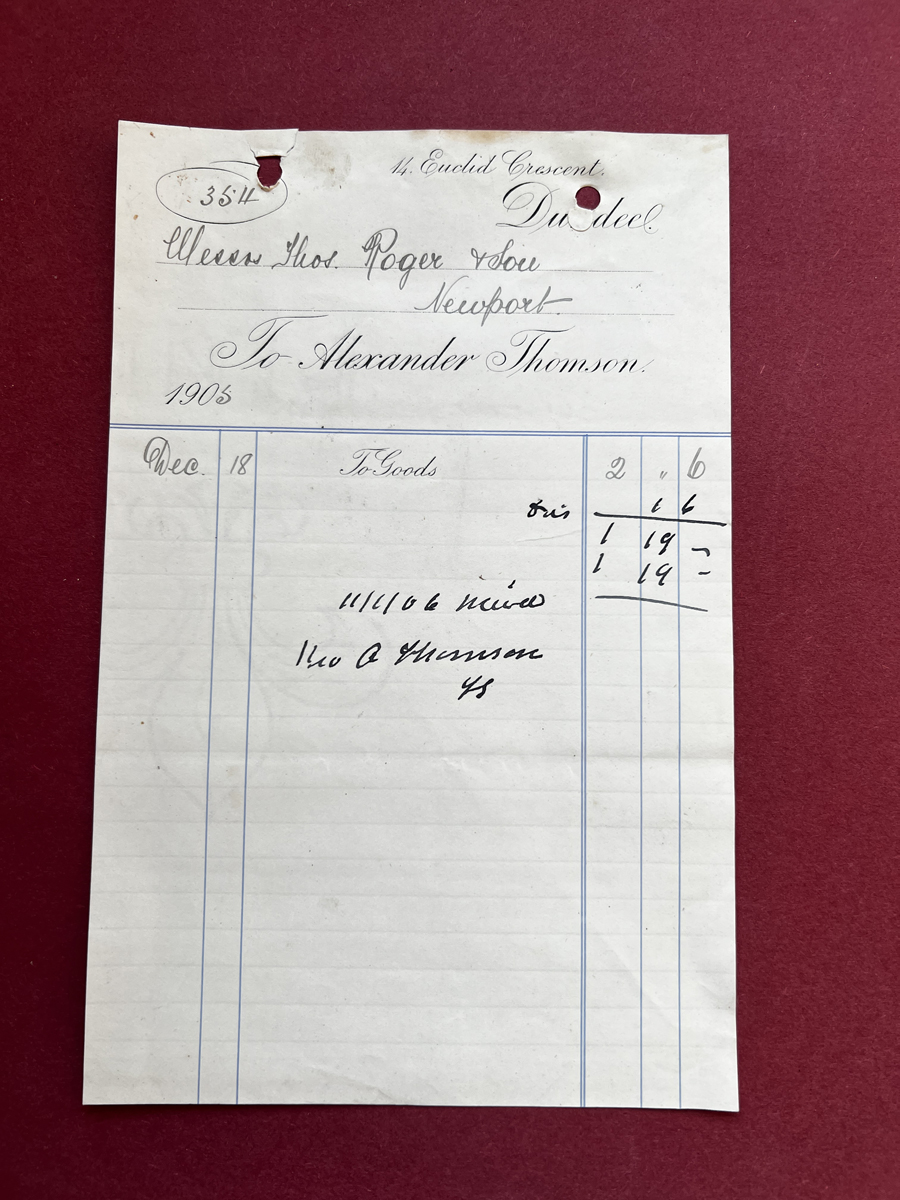 14. Euclid Crescent.
354
Dundee.
Messrs Thos. Roger & Son
Newport
To Alexander Thomson.
1905
Dec. 18 To Goods 2 " 6
Dis 1 6
1 19 -
1 19 -
11/1/06
A Thomson